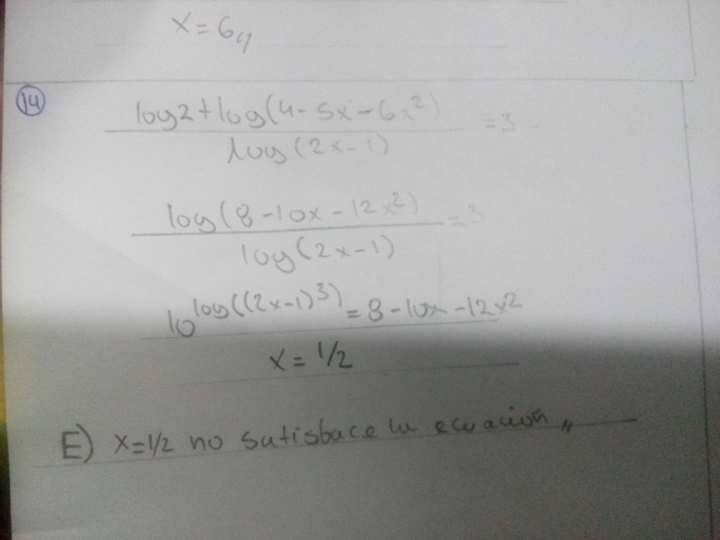 x = 6,,
14
log2+log(4-5x-6x²)
log(2x-1)
=3
log(8-10x-12x²)
log(2x-1)
=3
10^log((2x-1)^3) = 8-10x-12x²
x = 1/2
E) x=1/2 no satisface la ecuación,,